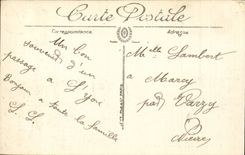 Carte Postale
Correspondance
Adresse
Un bon
souvenir d'un
passage à Lyon
à toute la famille
Melle Lambert
à Marcy
par Varzy
Nièvre